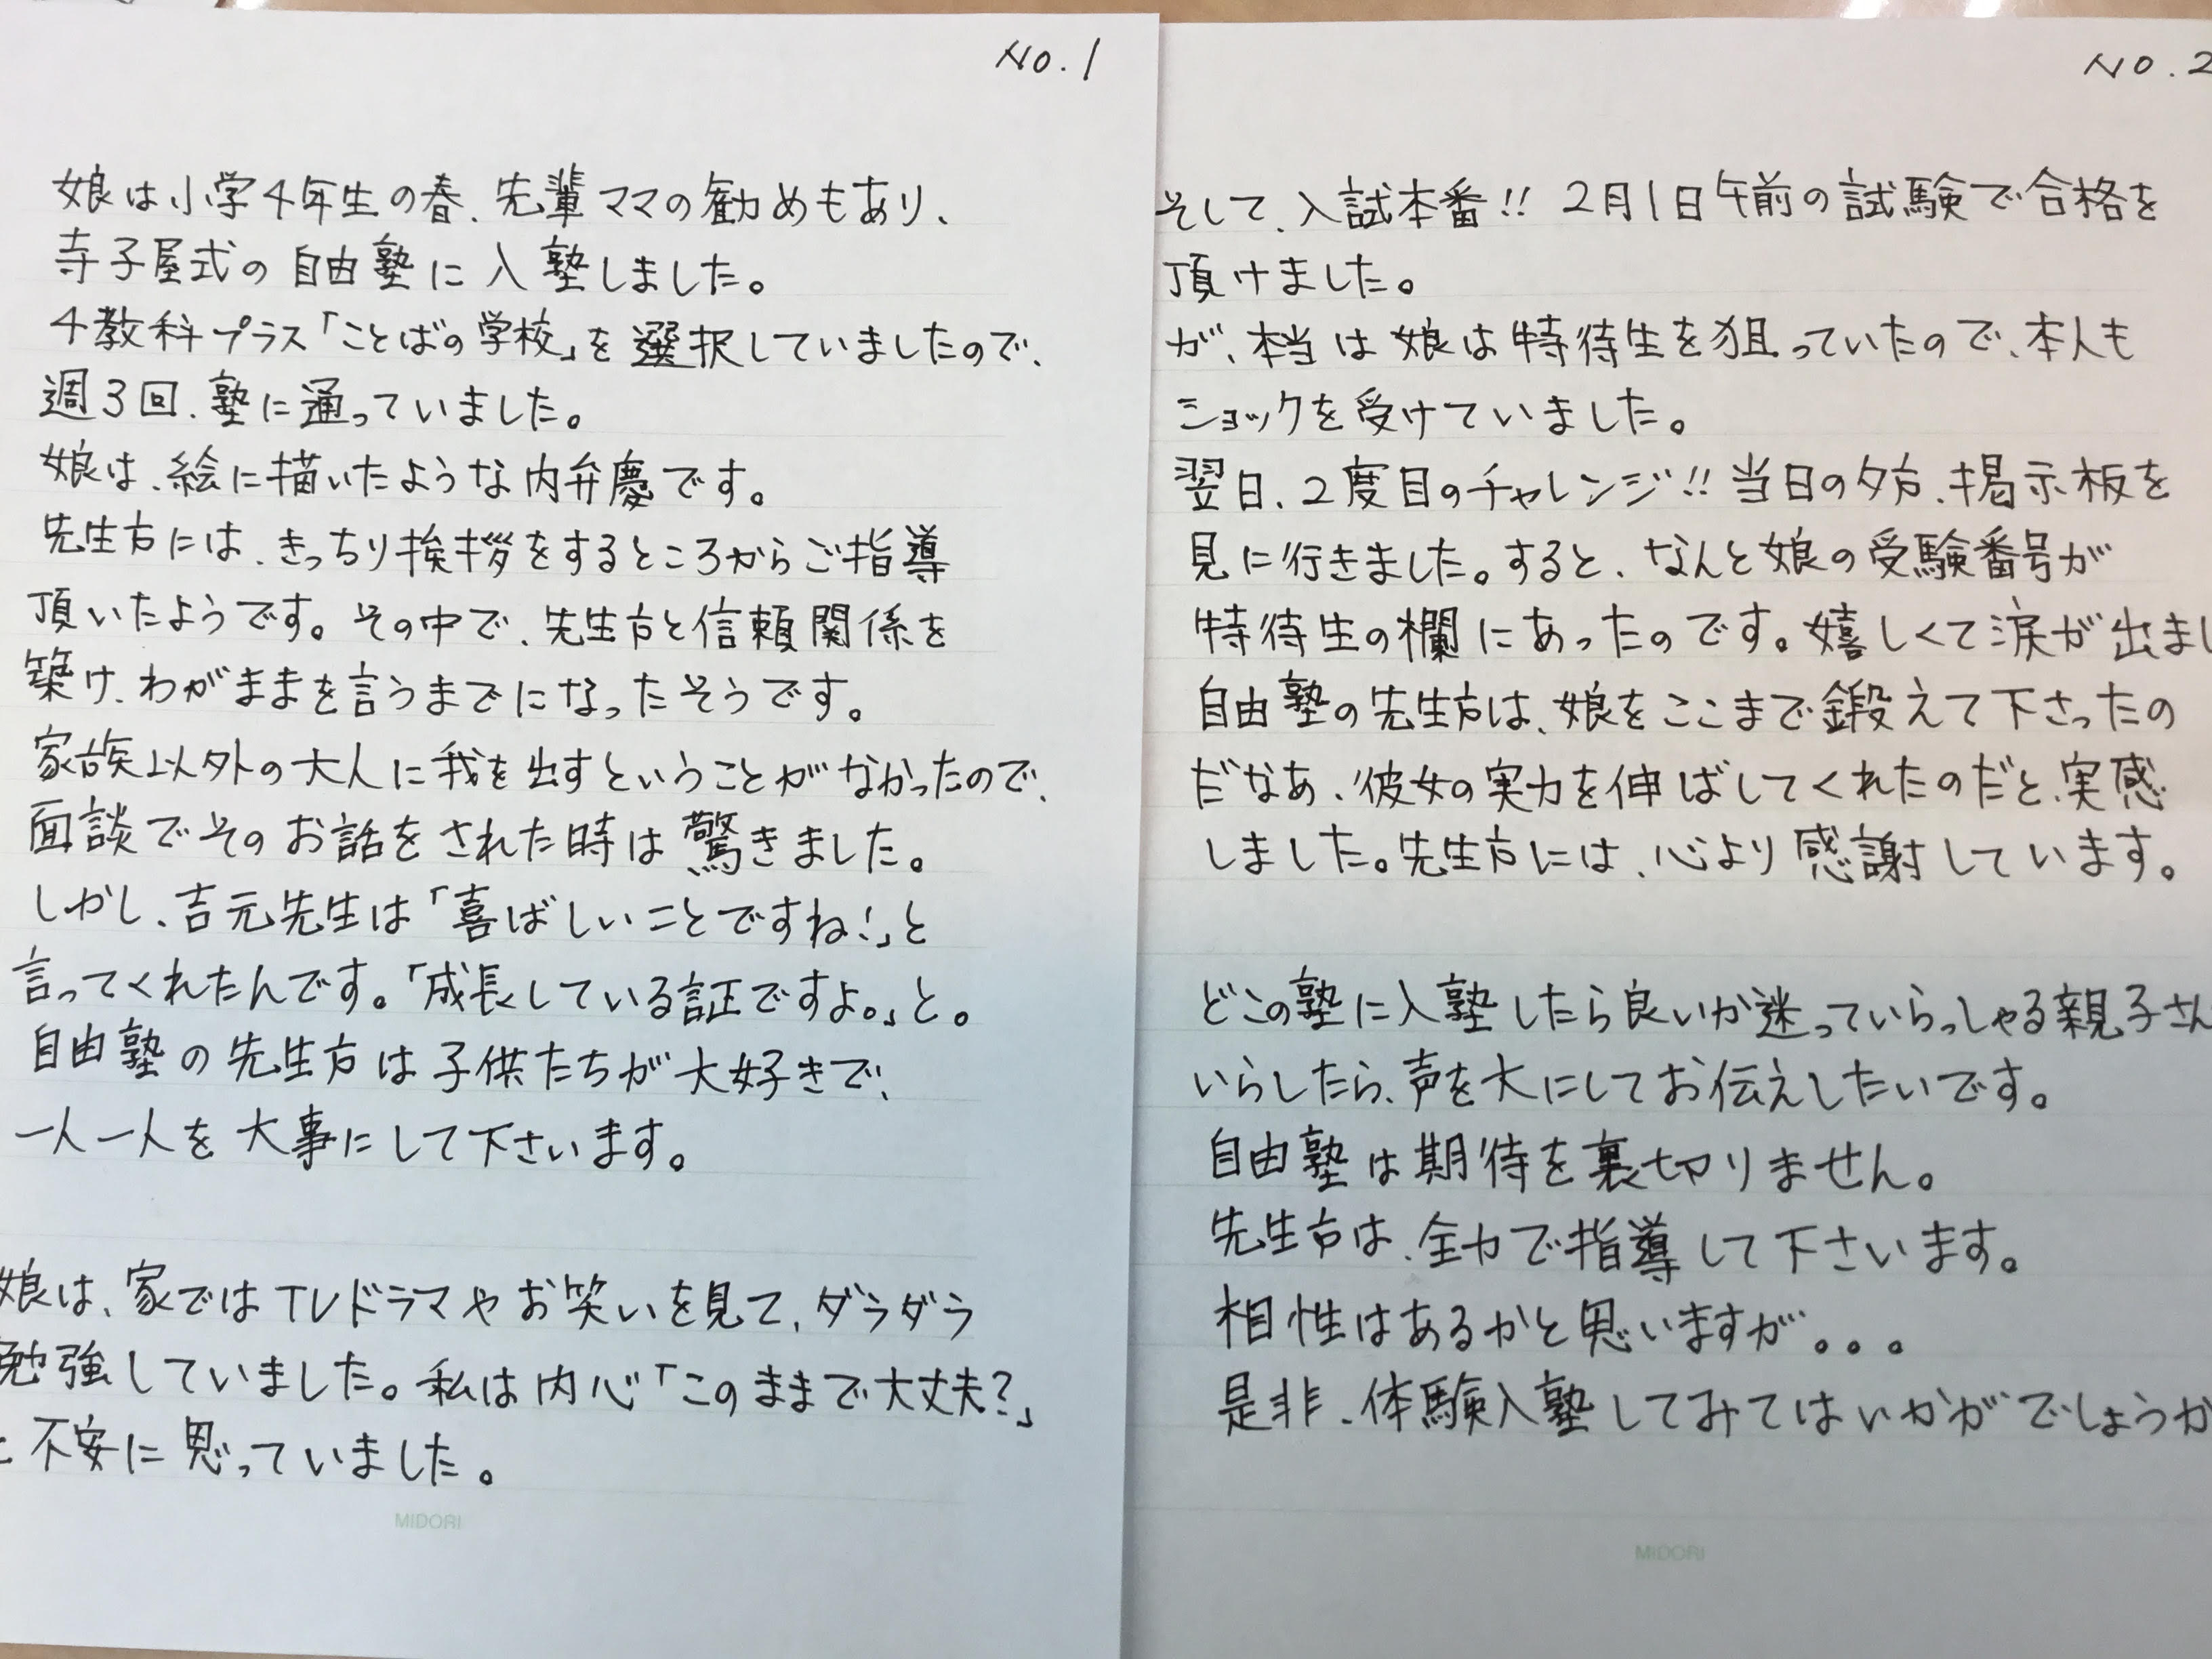 No.1
娘は小学4年生の春、先輩ママの勧めもあり、
寺子屋式の自由塾に入塾しました。
4教科プラス「ことばの学校」を選択していましたので、
週3回、塾に通っていました。
娘は、絵に描いたような内弁慶です。
先生方には、きっちり挨拶をするところからご指導
頂いたようです。その中で、先生方と信頼関係を
築け、わがままを言うまでになったそうです。
家族以外の大人に我を出すということがなかったので、
面談でそのお話をされた時は驚きました。
しかし、吉元先生は「喜ばしいことですね!」と
言ってくれたんです。「成長している証ですよ。」と。
自由塾の先生方は子供たちが大好きで、
一人一人を大事にして下さいます。
娘は、家ではTVドラマやお笑いを見て、ダラダラ
勉強していました。私は内心「このままで大丈夫?」
と不安に思っていました。
MIDORI
No.2
そして、入試本番!! 2月1日午前の試験で合格を
頂けました。
が、本当は娘は特待生を狙っていたので、本人も
ショックを受けていました。
翌日、2度目のチャレンジ!! 当日の夕方、掲示板を
見に行きました。すると、なんと娘の受験番号が
特待生の欄にあったのです。嬉しくて涙が出まし
自由塾の先生方は、娘をここまで鍛えて下さったの
だなあ、彼女の実力を伸ばしてくれたのだと、実感
しました。先生方には、心より感謝しています。
どこの塾に入塾したら良いか迷っていらっしゃる親子さん
いらしたら、声を大にしてお伝えしたいです。
自由塾は期待を裏切りません。
先生方は、全力で指導して下さいます。
相性はあるかと思いますが。。。
是非、体験入塾してみてはいかがでしょうか
MIDORI